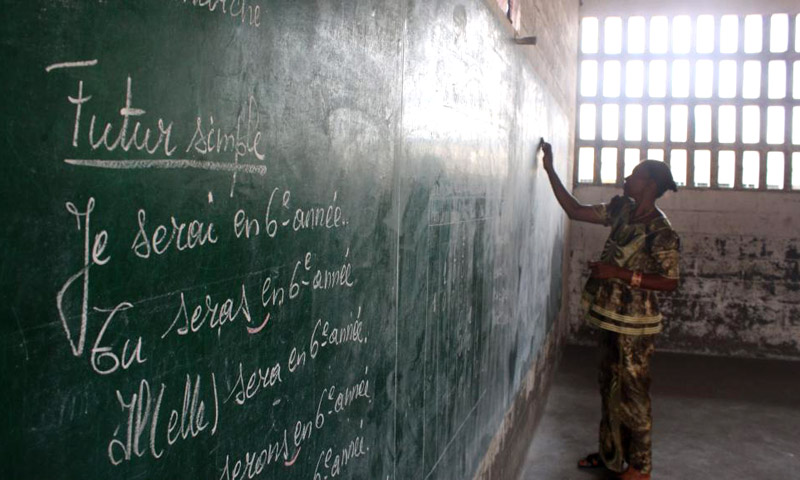 marche
Futur simple
Je serai en 6e année.
Tu seras en 6e année
Il (elle) sera en 6e année.
serons en 6e année
6e année.